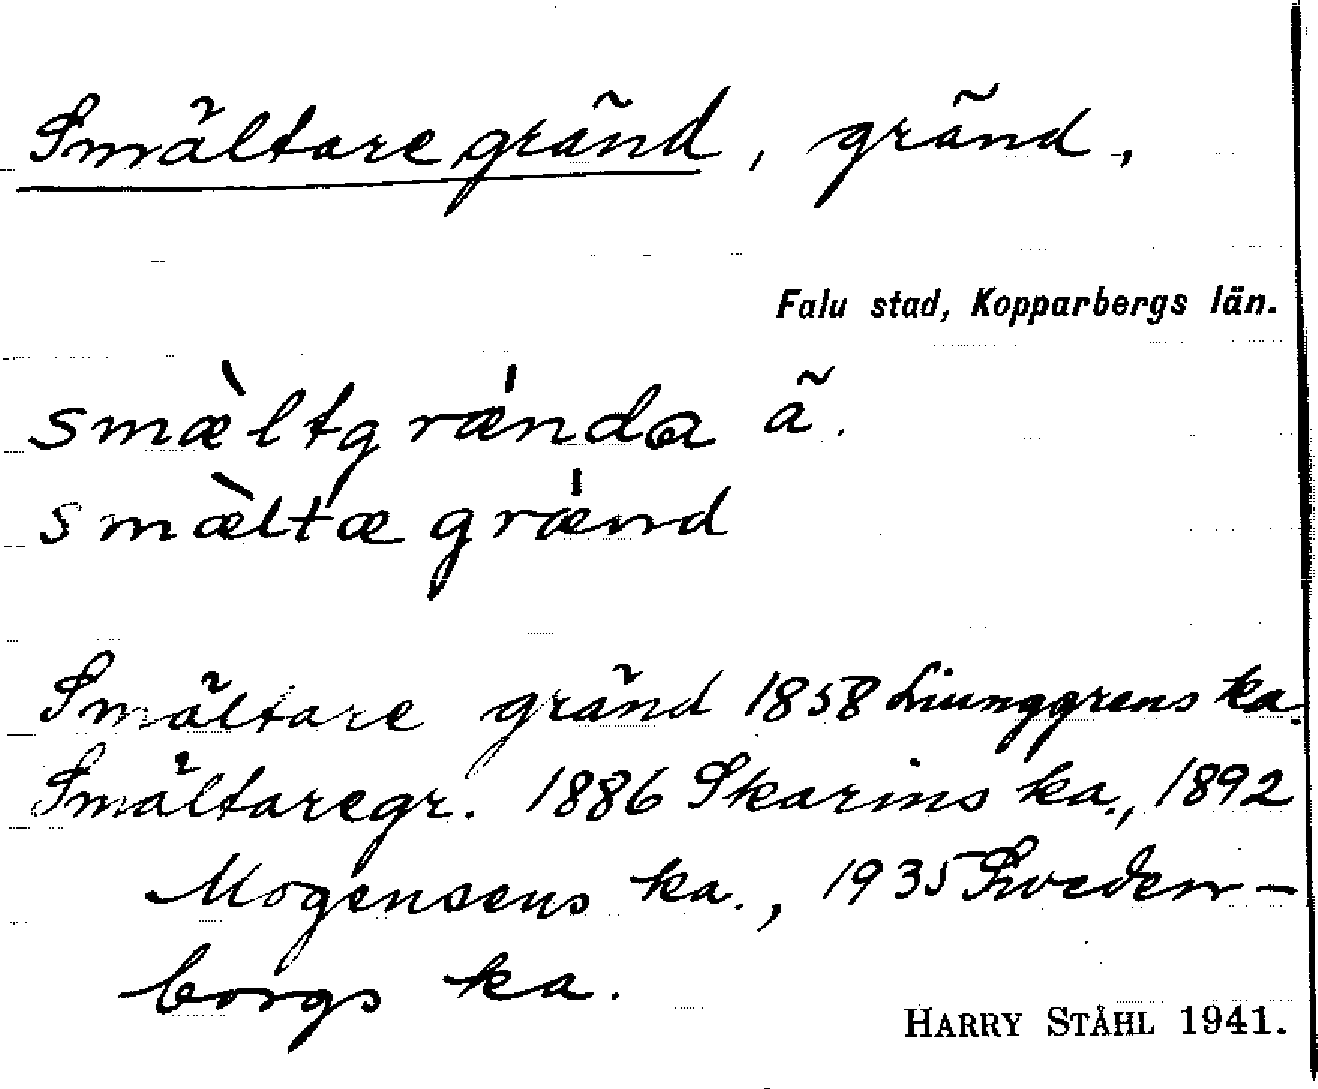 Smältaregränd, gränd,
Falu stad, Kopparbergs län.
smæ̀ltgrǽnda ã.
smæ̀ltægrǽnd
Smältare gränd 1858 Liunggrens ka.
Smältaregr. 1886 Skarins ka., 1892
Mogensens ka., 1935 Sweden-
borgs ka.
HARRY STÅHL 1941.